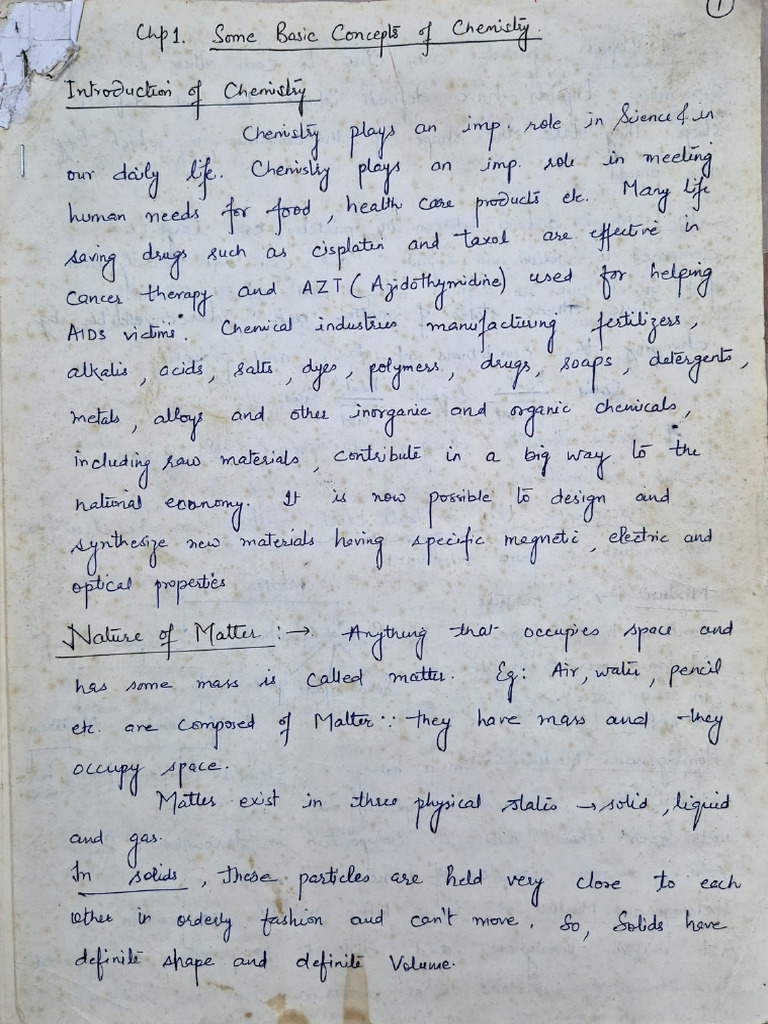 1
Chp 1. Some Basic Concepts of Chemistry.
Introduction of Chemistry
Chemistry plays an imp. role in Science & in
our daily life. Chemistry plays an imp. role in meeting
human needs for food, health care products etc. Many life
saving drugs such as cisplatin and taxol are effective in
Cancer therapy and AZT (Azidothymidine) used for helping
AIDS victims. Chemical industries manufacturing fertilizers,
alkalis, acids, salts, dyes, polymers, drugs, soaps, detergents,
metals, alloys and other inorganic and organic chemicals,
including raw materials, contribute in a big way to the
national economy. It is now possible to design and
synthesize new materials having specific magnetic, electric and
optical properties
Nature of Matter :→ Anything that occupies space and
has some mass is called matter. Eg: Air, water, pencil
etc. are composed of Matter ∵ they have mass and they
occupy space.
Matter exist in three physical states → solid, liquid
and gas.
In solids, these particles are held very close to each
other in orderly fashion and can't move. So, Solids have
definite shape and definite Volume.